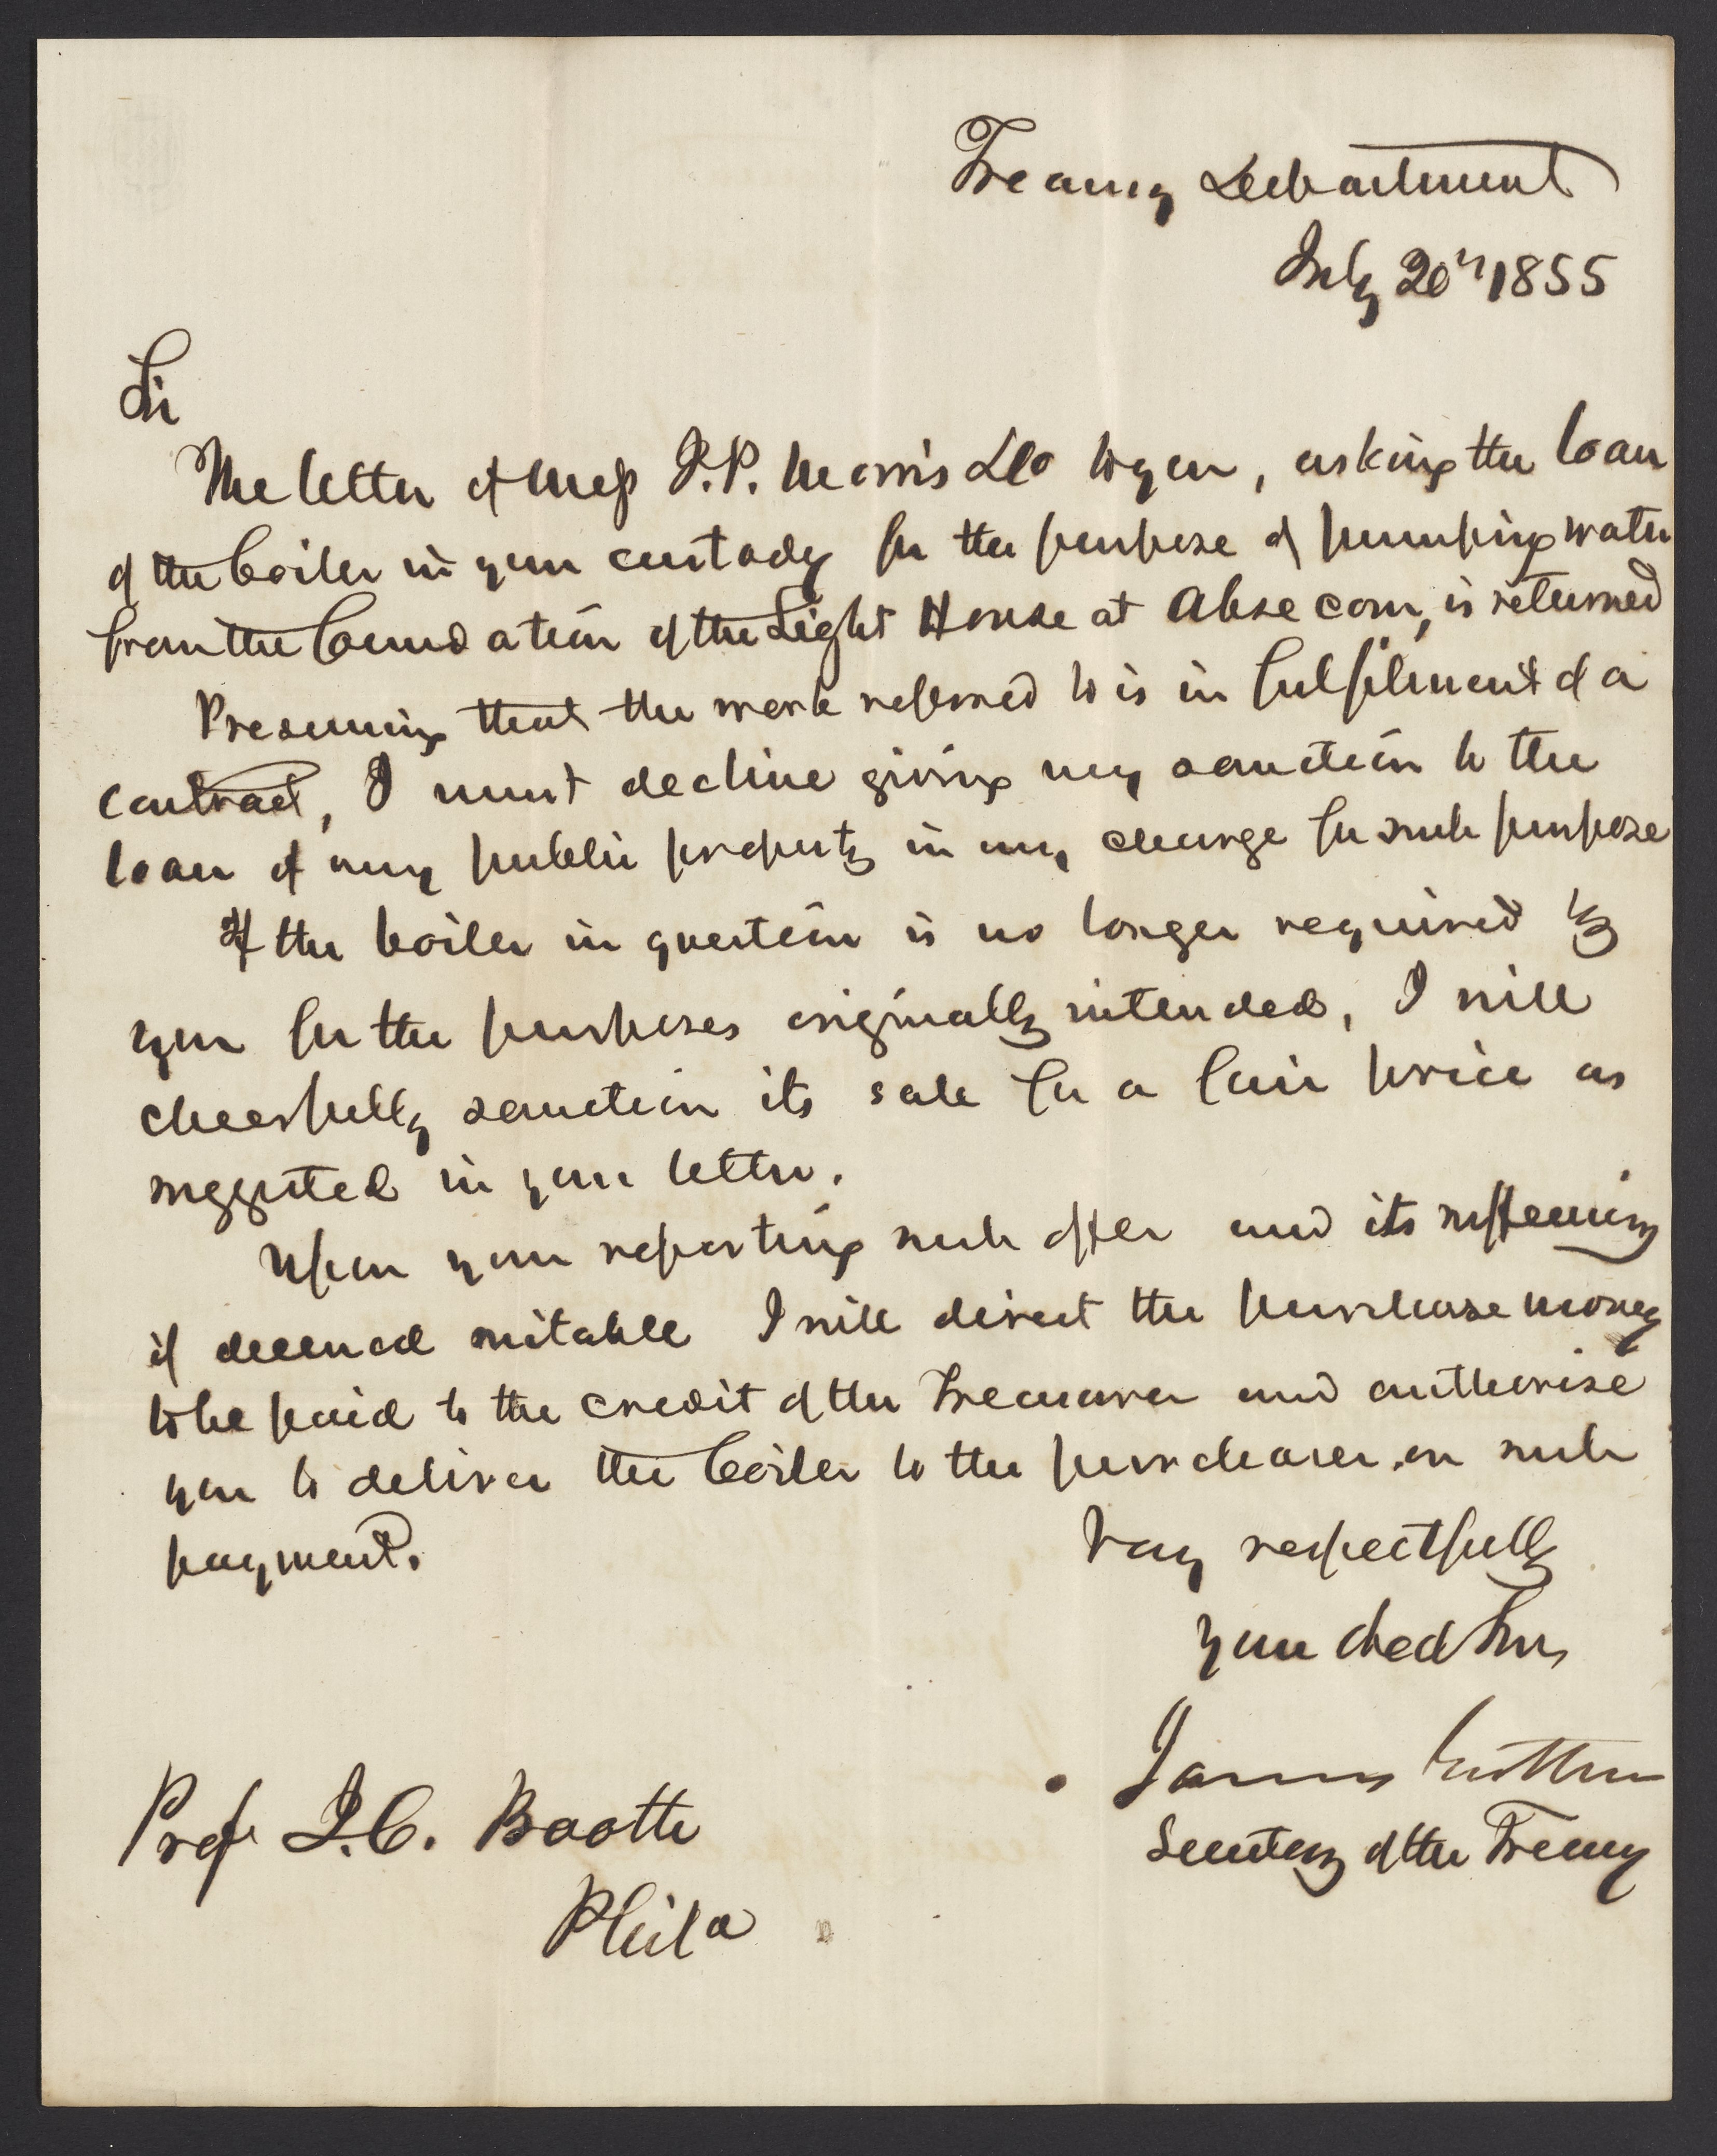 Treasury Department
July 20th 1855
Sir
The letter of Mess I.P. Morris & Co to you, asking the loan
of the boiler in your custody for the purpose of pumping water
from the foundation of the Light House at Absecom, is returned
Presuming that the work referred to is in fulfilment of a
contract, I must decline giving my sanction to the
loan of any public property in my charge for such purpose
If the boiler in question is no longer required by
you for the purposes originally intended, I will
cheerfully sanction its sale for a fair price as
suggested in your letter.
Upon your reporting such offer and its sufficiency
if deemed suitable I will direct the purchase money
to be paid to the credit of the Treasurer and authorise
you to deliver the boiler to the purchaser on such
payment.
Very respectfully
your Obed Srv
James Guthrie
Secretary of the Treasury
Prof J.C. Booth
Phila